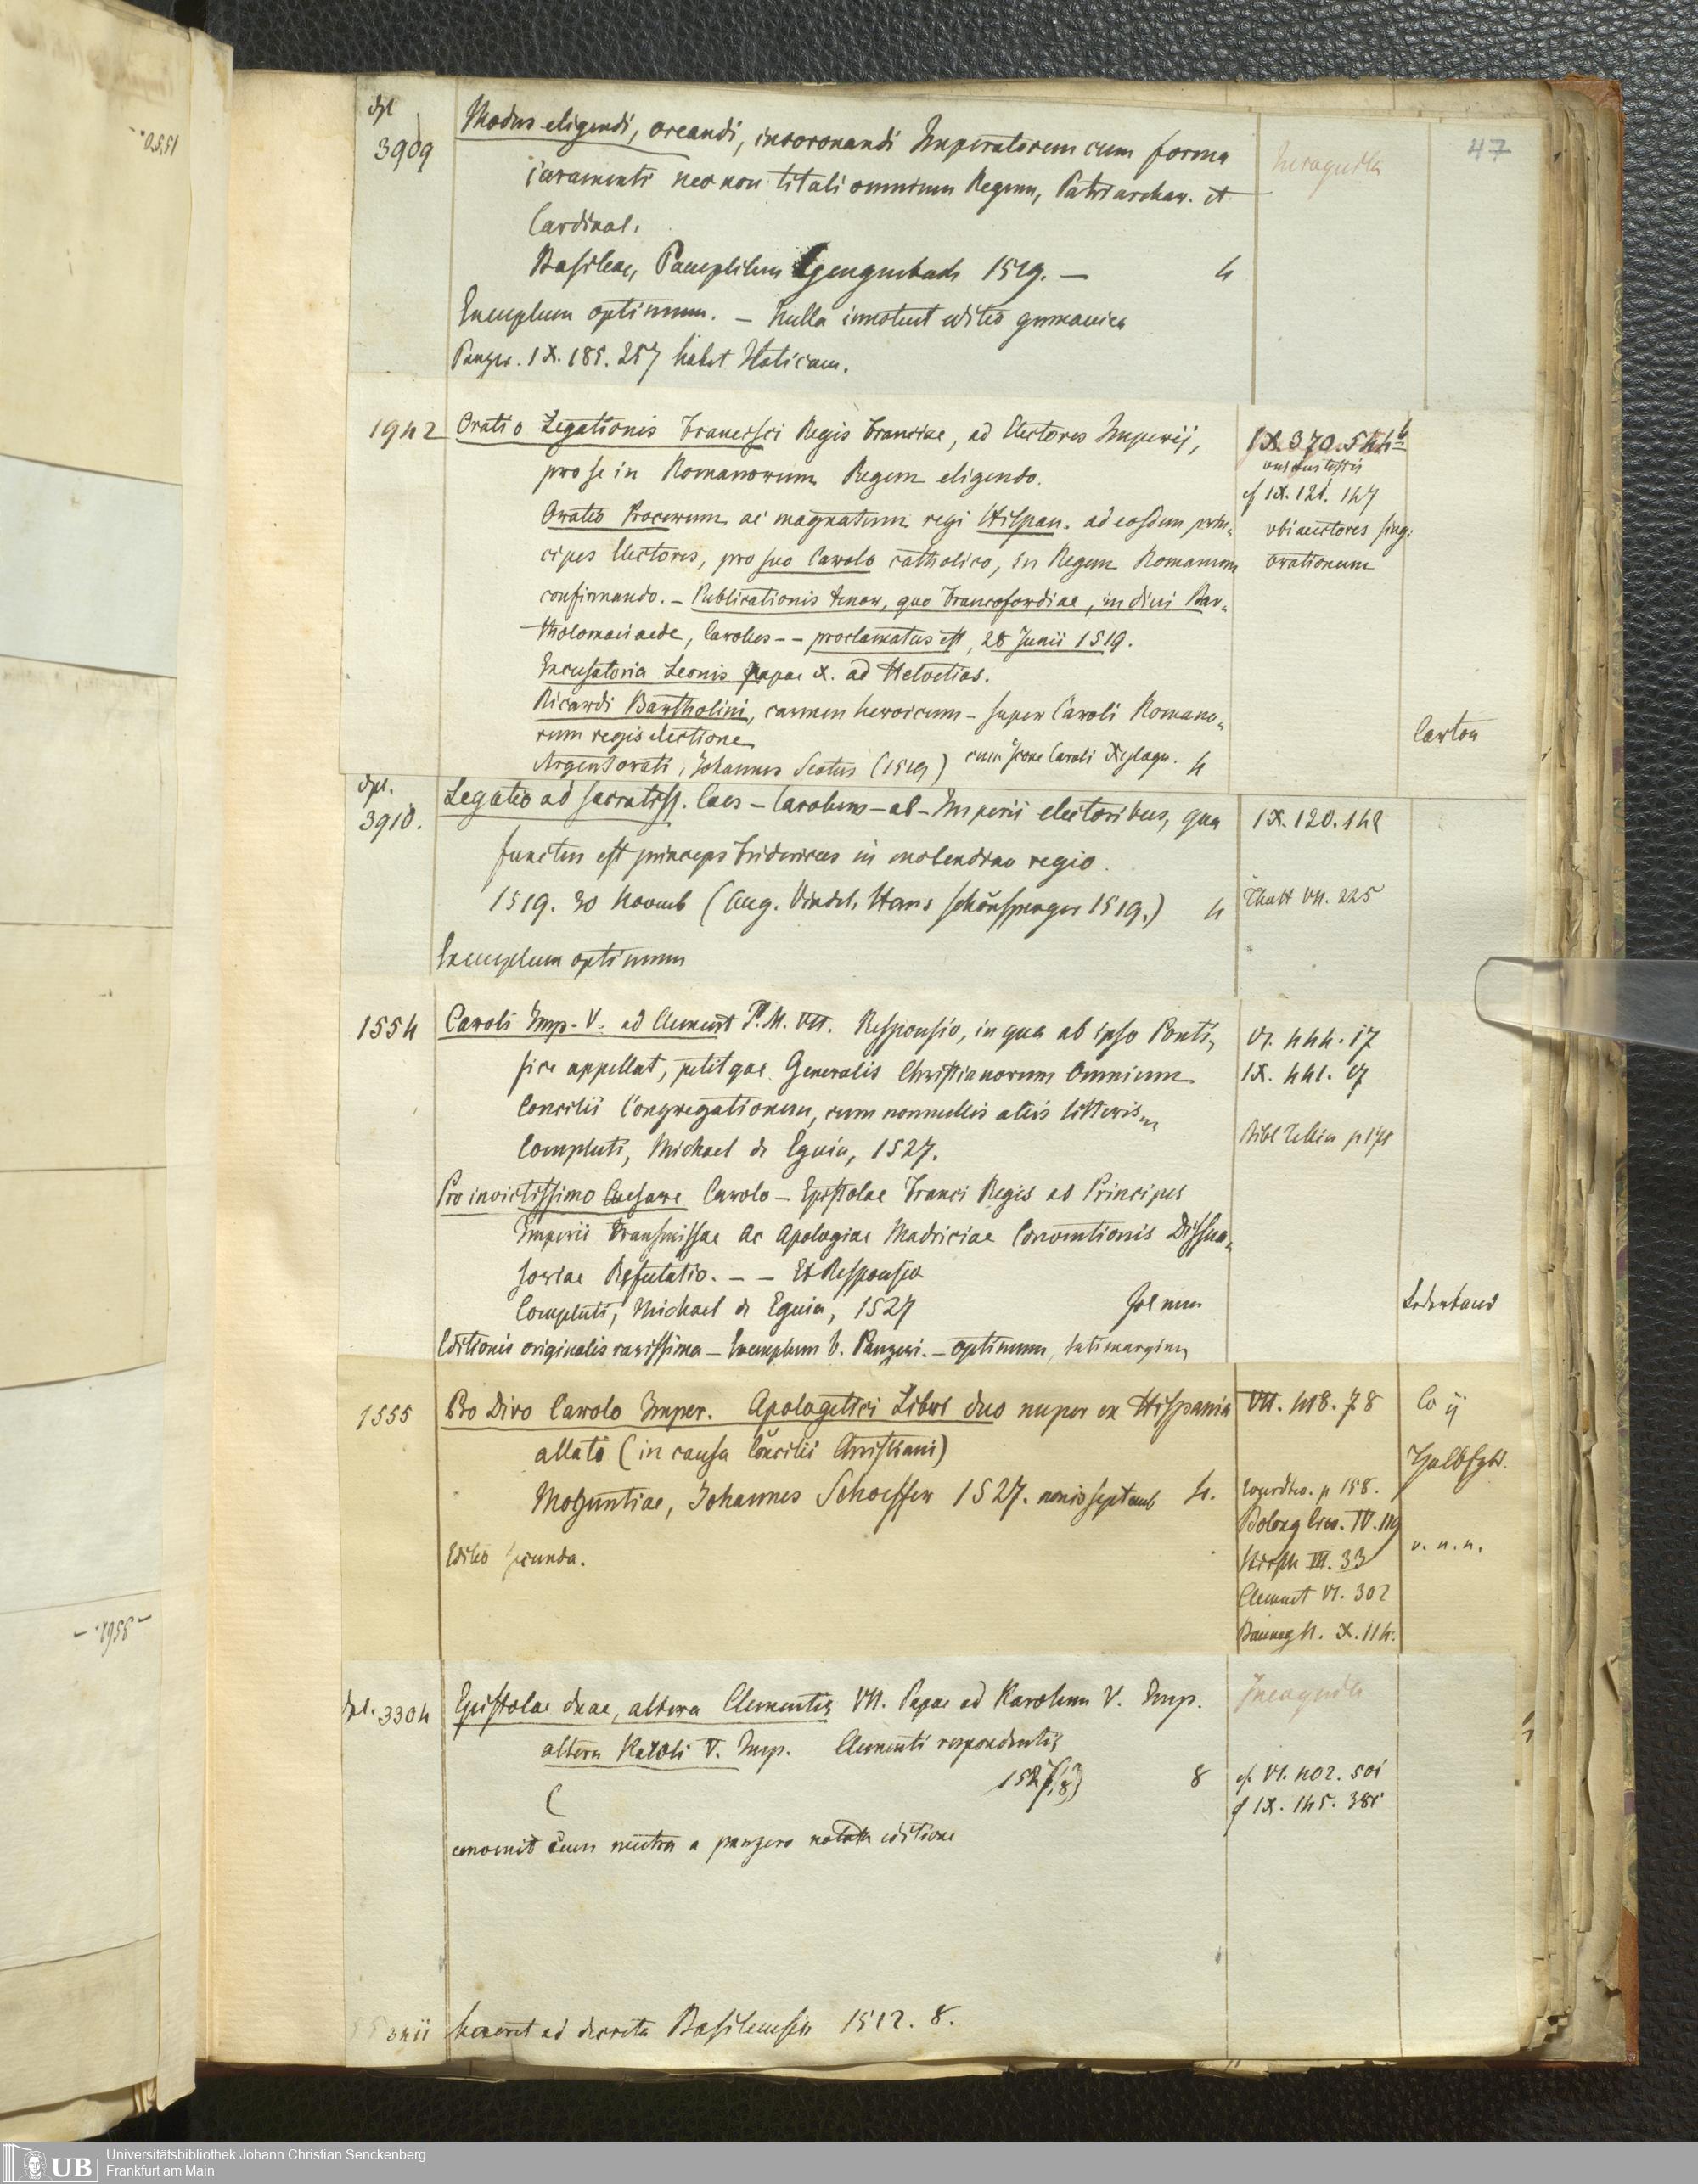 47
dpl
3909
Modus eligendi, creandi, incoronandi Imperatorem cum forma
juramenti nec non tituli omnium Regum, Patriarchar. et
Cardinal.
Basileae, Pamphilum Gengenbach 1519. — 4
Exemplum optimum. — Nulla innotuit editio germanica
Panzer. IX. 185. 257 habet Italicam.
1942 Oratio Legationis Francisci Regis Franciae, ad Electores Imperij,
pro se in Romanorum Regem eligendo.
Oratio Procerum ac magnatum regi Hispan. ad eosdem prin-
cipes Electores, pro suo Carolo catholico, in Regem Romanum
confirmando. — Publicationis tenor, quo Francofordiae, in divi Bar-
tholomaei aede, Carolus -- proclamatus est, 28 Junii 1519.
Excusatoria Leonis Papae X. ad Helvetios.
Ricardi Bartholini, carmen heroicum – super Caroli Romano-
rum regis electione
Argentorati, Johannes Scotus (1519) cum Icone Caroli Xylogr. 4
IX. 370. 544 b
cf IX. 121. 147
ubi auctores sing.
orationum
Carton
dpl.
3910.
Legatio ad sacratiss. Caes – Carolum – ab – Imperii electoribus, qua
functus est princeps Fridericus in molendino regio.
1519. 30 Novemb (Aug. Vindel. Hans Schönsperger 1519.) 4
Exemplum optimum
IX. 120. 142
VII. 225
1554 Caroli Imp. V. ad Clement P. M. VII. Responsio, in qua ab ipso Ponti-
fice appellat, petitque Generalis Christianorum Omnium
Concilii Congregationem, cum nonnullis aliis litteris
Compluti, Michael de Eguia, 1527.
Pro invictissimo Caesare Carolo – Epistolae Franci Regis ad Principes
Imperii transmissae Ac Apologiae Madriciae Conventionis Dissua-
soriae Refutatio. – – Et Responsio
Compluti, Michael de Eguia, 1527 fol min
Editionis originalis rarissima – Exemplum b. Panzeri. – optimum, lati marginis
VI. 444. 17
IX. 441. 17
Lederband
1555 Pro Divo Carolo Imper. Apologetici Libri duo nuper ex Hispania
allati (in causa Concilii Christiani)
Moguntiae, Johannes Schoeffer 1527. nonis septemb 4.
Editio secunda.
VII. 418. 78
p 158.
III. 33
Clement VI. 302
X. 114.
Co ij
Halbfrz.
v. n. n.
dpl. 3304 Epistolae duae, altera Clementis VII. Papae ad Karolum V. Imp.
altera Karoli V. Imp. Clementi respondentis
8
convenit cum neutra a panzero notata editione
cf. VI. 402. 501
cf IX. 145. 381
ad decreta Basileensia 1512. 8.
Universitätsbibliothek Johann Christian Senckenberg
Frankfurt am Main
UB